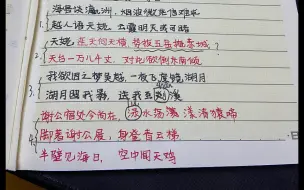 海客谈瀛洲，烟波微茫信难求
1. 越人语天姥，云霞明灭或可睹
天姥连天向天横，势拔五岳掩赤城
2. 天台一万八千丈，对此欲倒东南倾
我欲因之梦吴越，一夜飞度镜湖月
3. 湖月照我影，送我至剡溪
谢公宿处今尚在，渌水荡漾清猿啼
4. 脚著谢公屐，身登青云梯
半壁见海日，空中闻天鸡